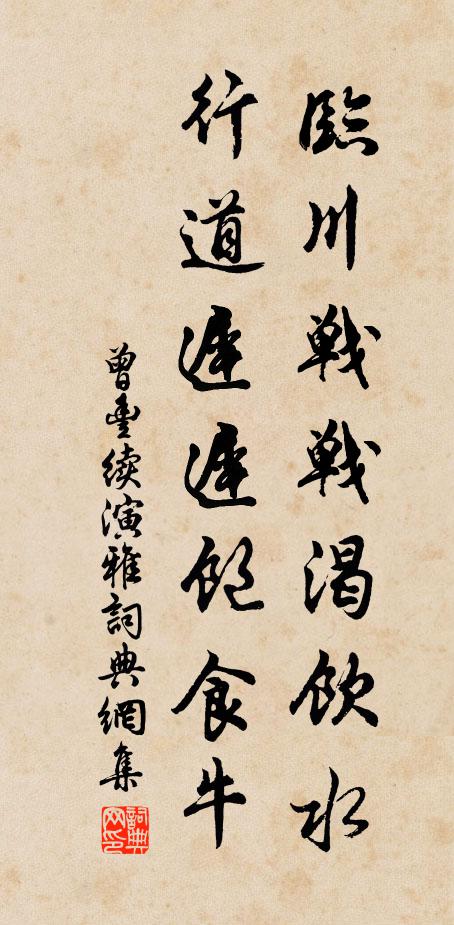 臨川戰戰渴飲水
行道遲遲飽食牛
曾豐續演雅詞典網集
詞典网印